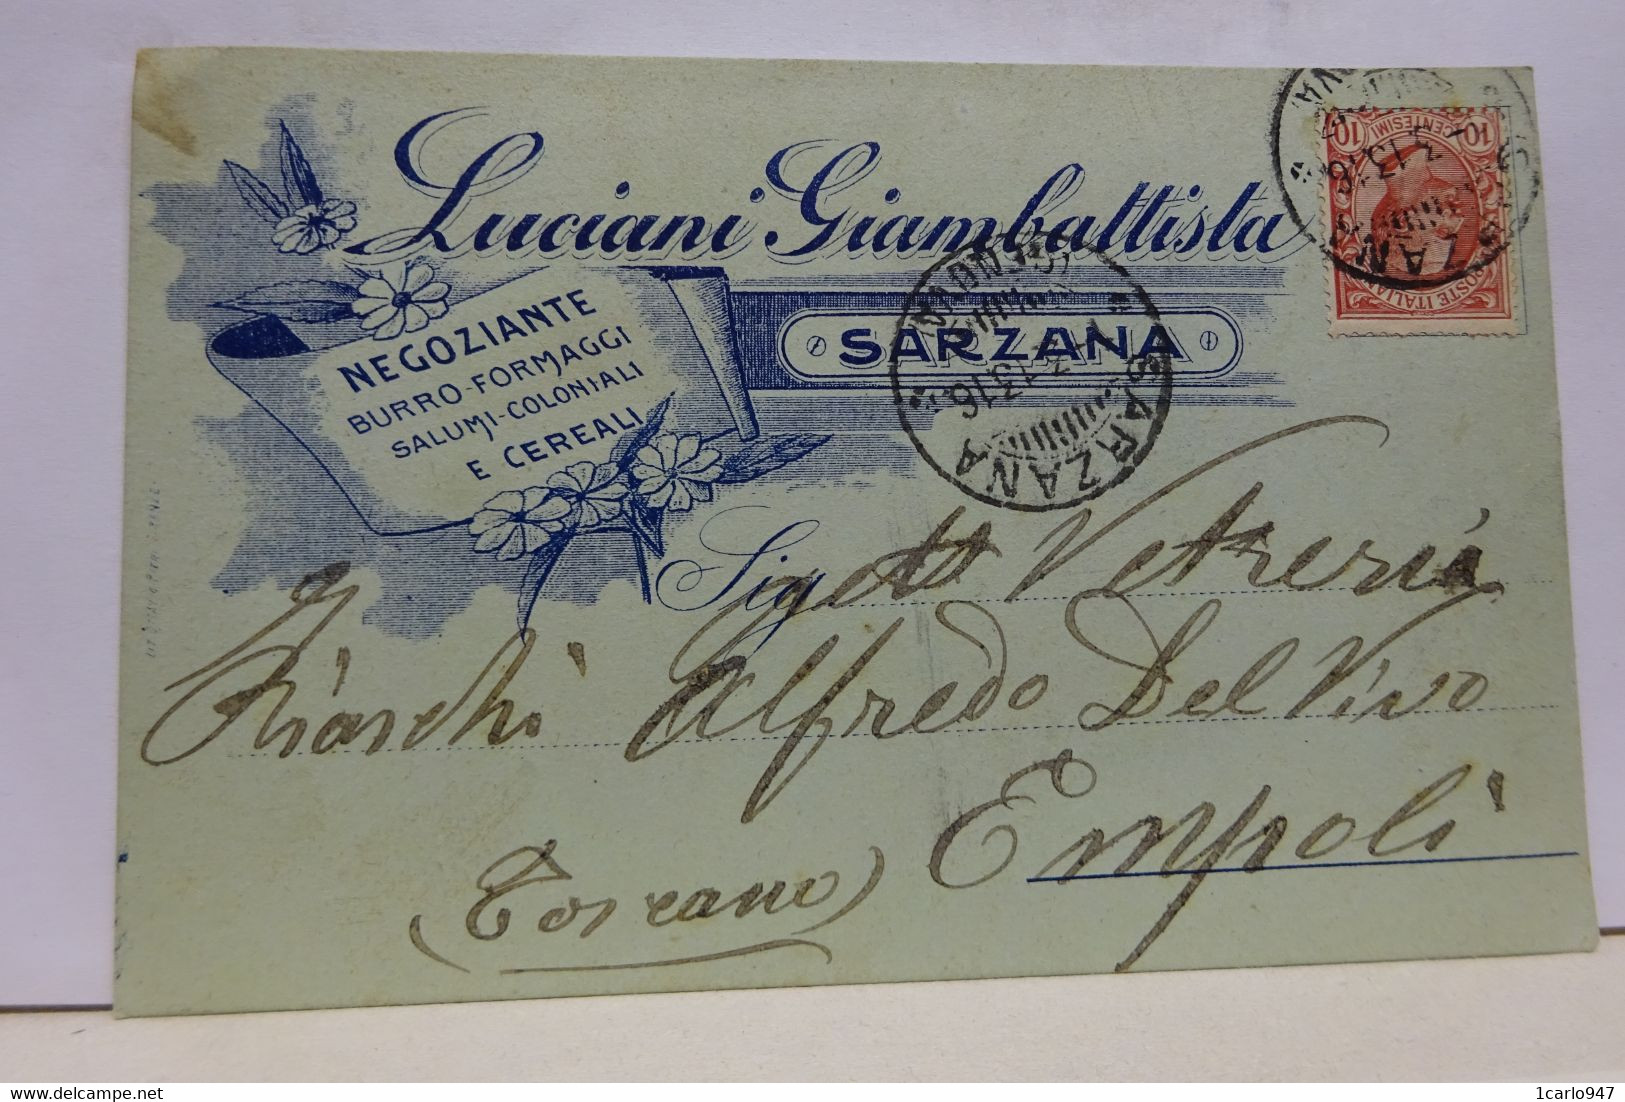 Luciani Giambattista
SARZANA
NEGOZIANTE
BURRO-FORMAGGI
SALUMI-COLONIALI
E CEREALI
10 CENTESIMI 10
POSTE ITALIANE
SARZANA
(GENOVA)
3.13.16
Sig
Vetreria
Fiaschi Alfredo Del Vivo
Empoli
(Toscana)
1carlo947
delcampe.net